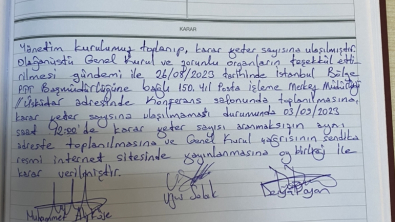 KARAR
Yönetim kurulumuz toplanıp, karar yeter sayısına ulaşılmıştır.
Olağanüstü Genel Kurul ve zorunlu organların teşekkül etti
rilmesi gündemi ile 26/08/2023 tarihinde İstanbul Bölge
PTT Başmüdürlüğüne bağlı 150. Yıl Posta İşleme Merkez Müdürlüğü
//Üsküdar adresinde Konferans salonunda toplanılmasına,
karar yeter sayısına ulaşılmaması durumunda 03/09/2023
saat 12:00'de karar yeter sayısı aranmaksızın aynı
adreste toplanılmasına ve Genel Kurul çağrısının sendika
resmi internet sitesinde yayınlanmasına oy birliği ile
karar verilmiştir.
Muhammet Uğur